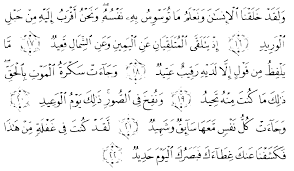 وَلَقَدْ خَلَقْنَا ٱلْإِنسَٰنَ وَنَعْلَمُ مَا تُوَسْوِسُ بِهِۦ نَفْسُهُۥ وَنَحْنُ أَقْرَبُ إِلَيْهِ مِنْ حَبْلِ
ٱلْوَرِيدِ ١٦ إِذْ يَتَلَقَّى ٱلْمُتَلَقِّيَانِ عَنِ ٱلْيَمِينِ وَعَنِ ٱلشِّمَالِ قَعِيدٌ ١٧ مَّا
يَلْفِظُ مِن قَوْلٍ إِلَّا لَدَيْهِ رَقِيبٌ عَتِيدٌ ١٨ وَجَآءَتْ سَكْرَةُ ٱلْمَوْتِ بِٱلْحَقِّ
ذَٰلِكَ مَا كُنتَ مِنْهُ تَحِيدُ ١٩ وَنُفِخَ فِى ٱلصُّورِ ذَٰلِكَ يَوْمُ ٱلْوَعِيدِ ٢٠
وَجَآءَتْ كُلُّ نَفْسٍ مَّعَهَا سَآئِقٌ وَشَهِيدٌ ٢١ لَّقَدْ كُنتَ فِى غَفْلَةٍ مِّنْ هَٰذَا
فَكَشَفْنَا عَنكَ غِطَآءَكَ فَبَصَرُكَ ٱلْيَوْمَ حَدِيدٌ ٢٢